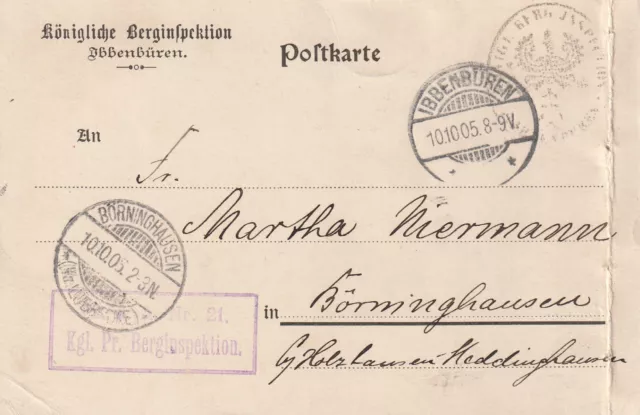 Königliche Berginspektion
Ibbenbüren.
Postkarte
KGL. BERG INSPECTION
IBBENBÜREN
10.10.05. 8-9V.
An
Fr.
Martha Niermann
BÖRNINGHAUSEN
10.10.05. 2-3N.
in Börninghausen
Nr. 21.
Kgl. Pr. Berginspektion.
Holzhausen-Heddinghausen